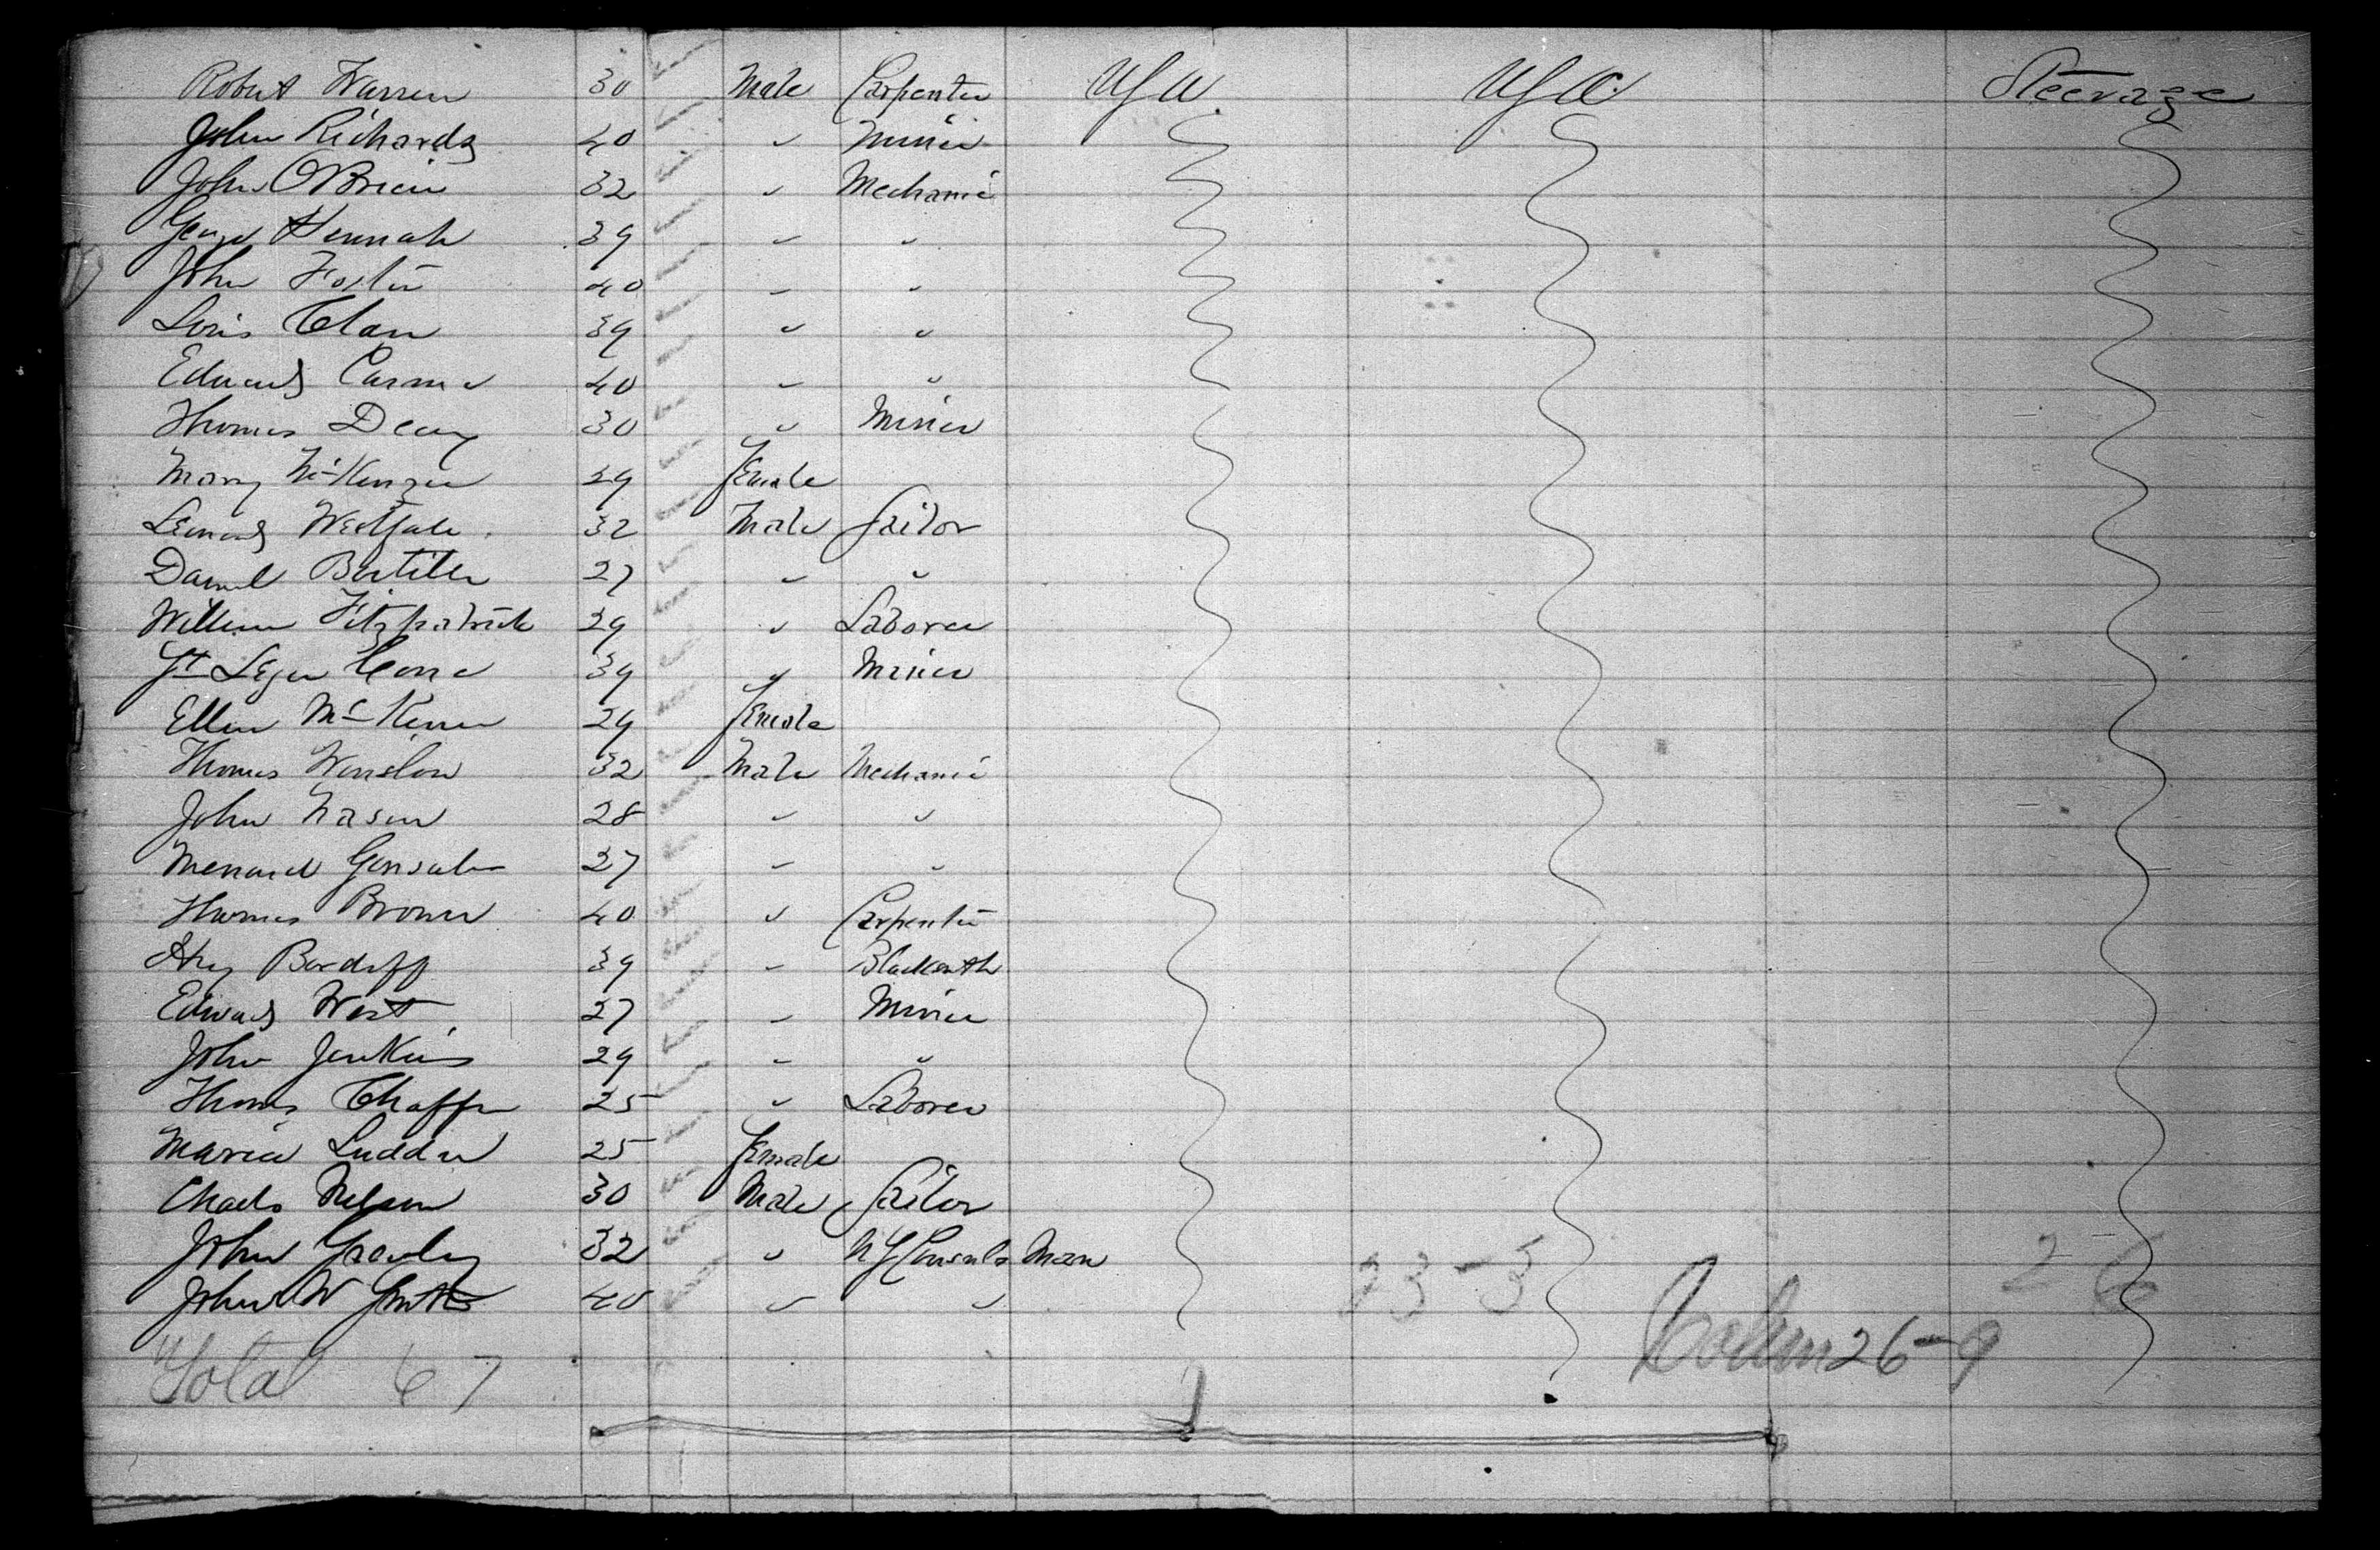 Robert Warren 30 Male Carpenter USA. USA. Steerage
John Richards 40 " Miner
John OBrien 32 " Mechanic
George Hannah 39 " "
John Foster 40 " "
Louis Clare 39 " "
Edward 40 " "
Thomas 30 " Miner
Mary McKenzie 29 female
Leonard Westfale 32 Male Sailor
Daniel 27 " "
William Fitzpatrick 29 " Laborer
St Leger 39 " Miner
Ellen 29 female
Thomas Winslow 32 Male Mechanic
John Nason 28 " "
27 " "
Thomas Brown 40 " Carpenter
39 " Blacksmith
Edward West 27 " Miner
John Jenkins 29 " "
Thomas 25 " Laborer
Maria 25 female
Charles Nelson 30 Male Sailor
John 32 " US Consuls Man
John W Smith 40 " "
23-3 26
Total 67 26-9